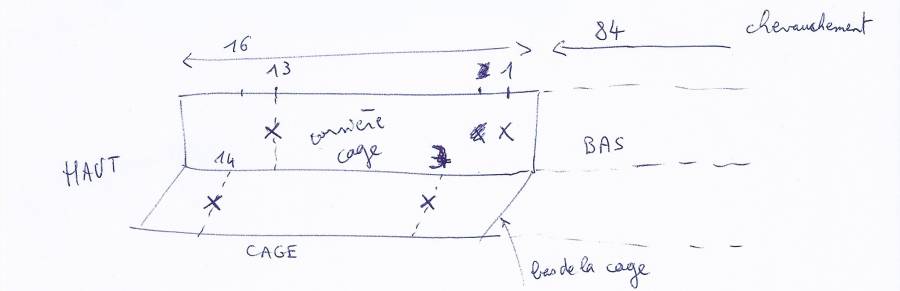 chevauchement
16
84
13
1
cornière
cage
14
HAUT
BAS
CAGE
bas de la cage